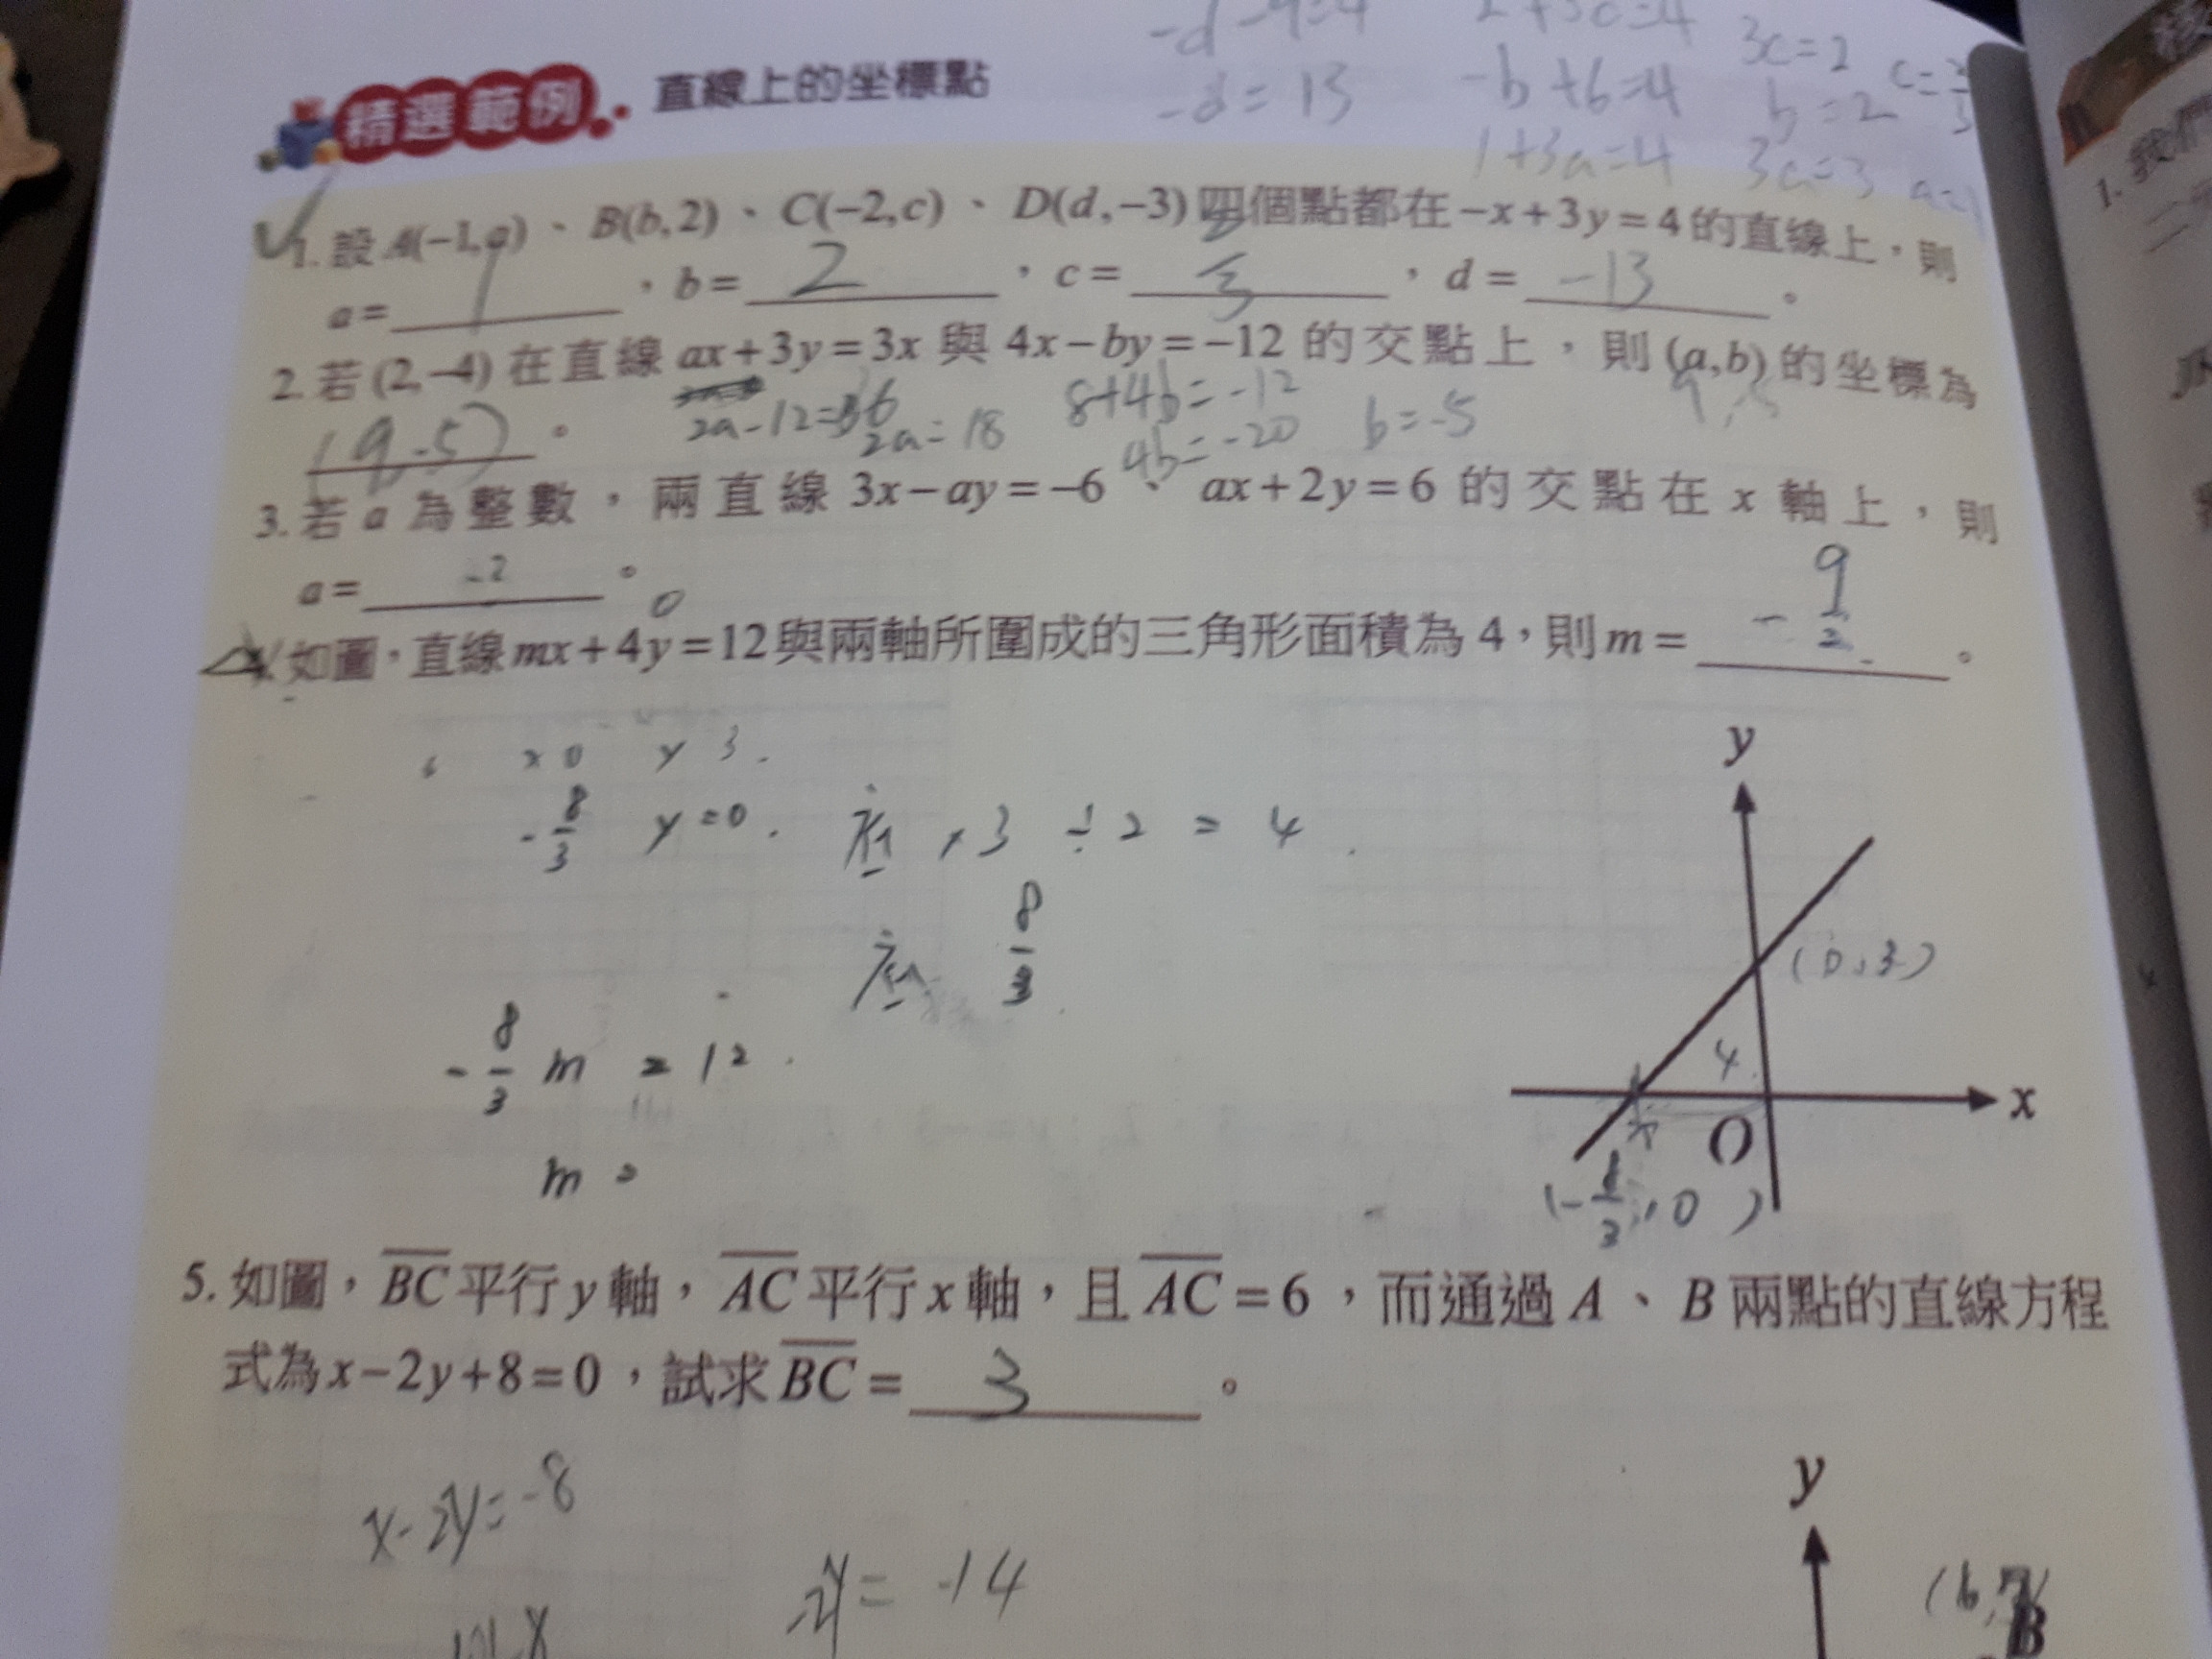 -d-9=4
2+3c=4
3c=2
c=2/3
-d=13
-b+6=4
b=2
1+3a=4
3a=3
a=1
精選範例 直線上的坐標點
1. 設A(-1,a)、B(b,2)、C(-2,c)、D(d,-3)四個點都在-x+3y=4的直線上，則
a=1，b=2，c=2/3，d=-13。
2. 若(2,-4)在直線ax+3y=3x與4x-by=-12的交點上，則(a,b)的坐標為
(9,-5)。
2a-12=6
2a=18
8+4b=-12
4b=-20
b=-5
9,-5
3. 若a為整數，兩直線3x-ay=-6、ax+2y=6的交點在x軸上，則
a=-2。
0
4. 如圖，直線mx+4y=12與兩軸所圍成的三角形面積為4，則m=-9/2。
x 0 y 3.
-8/3 y=0. 底×3÷2=4.
底 8/3
-8/3 m = 12.
m =
y
(0,3)
4
x
O
(-8/3,0)
5. 如圖，BC平行y軸，AC平行x軸，且AC=6，而通過A、B兩點的直線方程
式為x-2y+8=0，試求BC=3。
x-2y=-8
-2y=-14
y
B
1. 我們